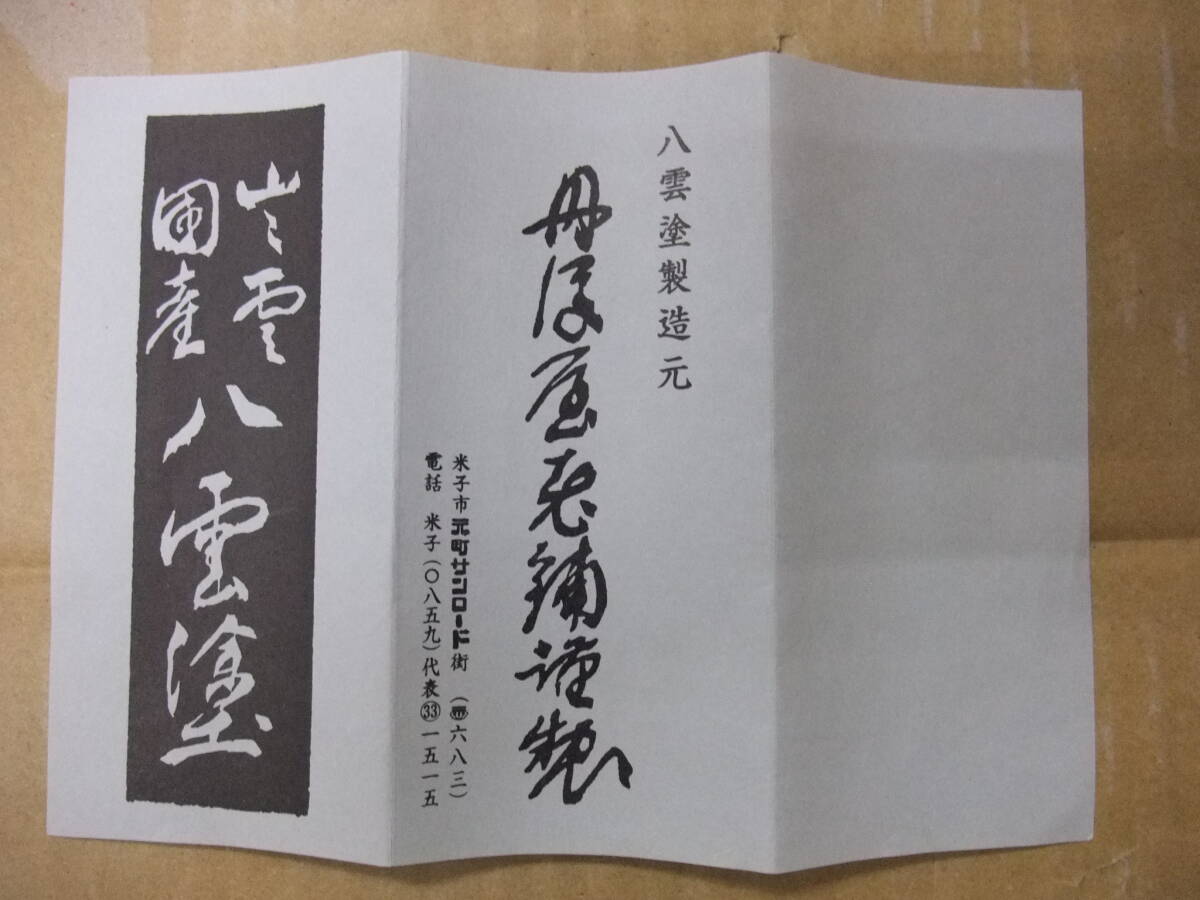 八雲塗製造元
丹後屋老鋪謹製
米子市元町サンロード街 (〒六八三)
電話 米子(〇八五九)代表㉝一五一五
出雲
國産
八雲塗